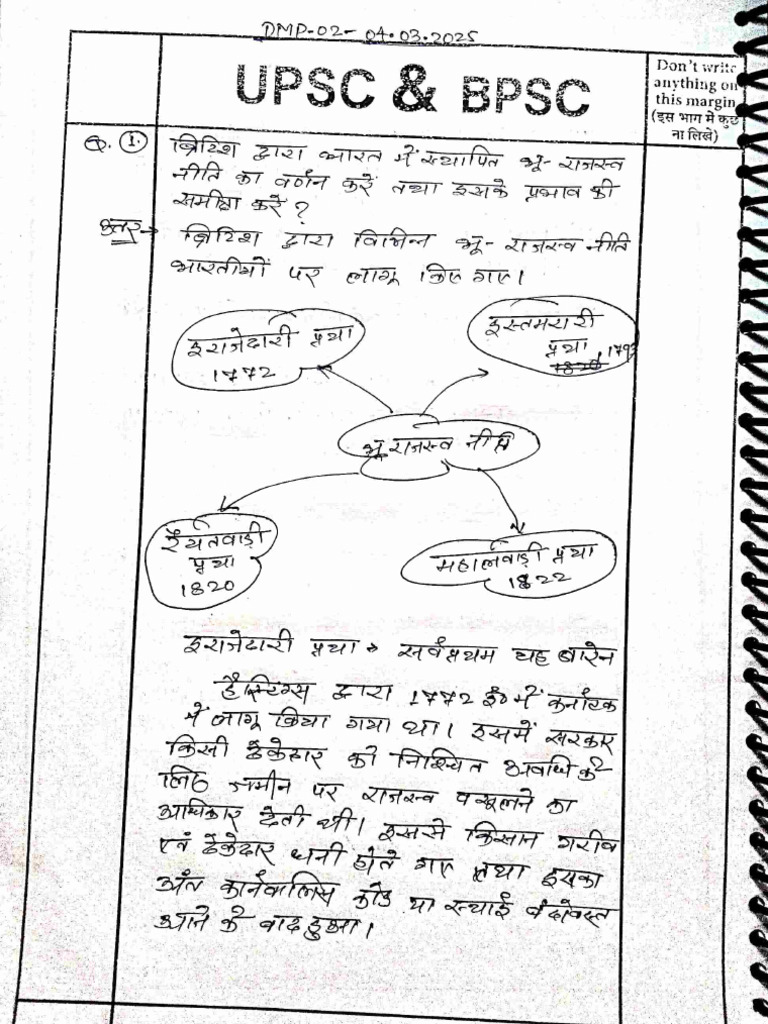 DMP-02- 04.03.2025
UPSC & BPSC
Don't write
anything on
this margin
(इस भाग में कुछ
ना लिखें)
Q. 1. ब्रिटिश द्वारा भारत में स्थापित भू-राजस्व
नीति का वर्णन करें तथा इसके प्रभाव की
समीक्षा करें?
उत्तर→ ब्रिटिश द्वारा विभिन्न भू-राजस्व नीति
भारतीयों पर लागू किए गए।
इजारेदारी प्रथा
1772
इस्तमरारी
प्रथा
1793
भू राजस्व नीति
रैयतवाड़ी
प्रथा
1820
महालवाड़ी प्रथा
1822
इजारेदारी प्रथा → सर्वप्रथम यह वारेन
हैस्टिंग्स द्वारा 1772 ई० में कर्नाटक
में लागू किया गया था। इसमें सरकार
किसी ठेकेदार को निश्चित अवधि के
लिए जमीन पर राजस्व वसूलने का
अधिकार देती थी। इससे किसान गरीब
एवं ठेकेदार धनी होते गए तथा इसका
अंत कार्नवालिस कोड या स्थाई बंदोवस्त
आने के बाद हुआ।